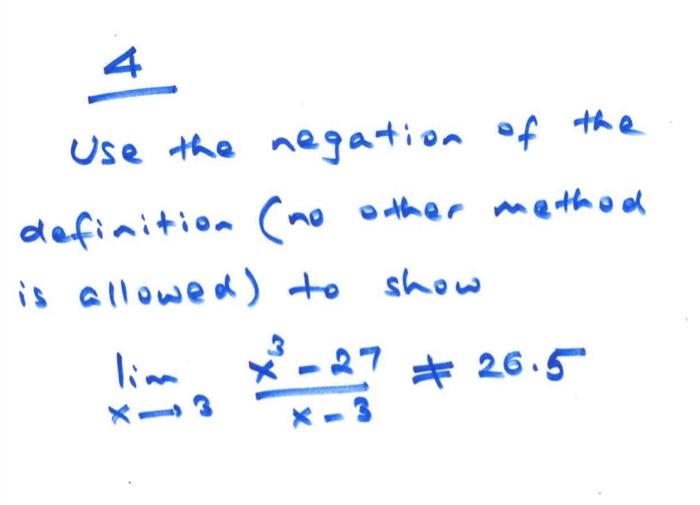 4
Use the negation of the
definition (no other method
is allowed) to show
lim x→3 (x³ - 27)/(x - 3) ≠ 26.5